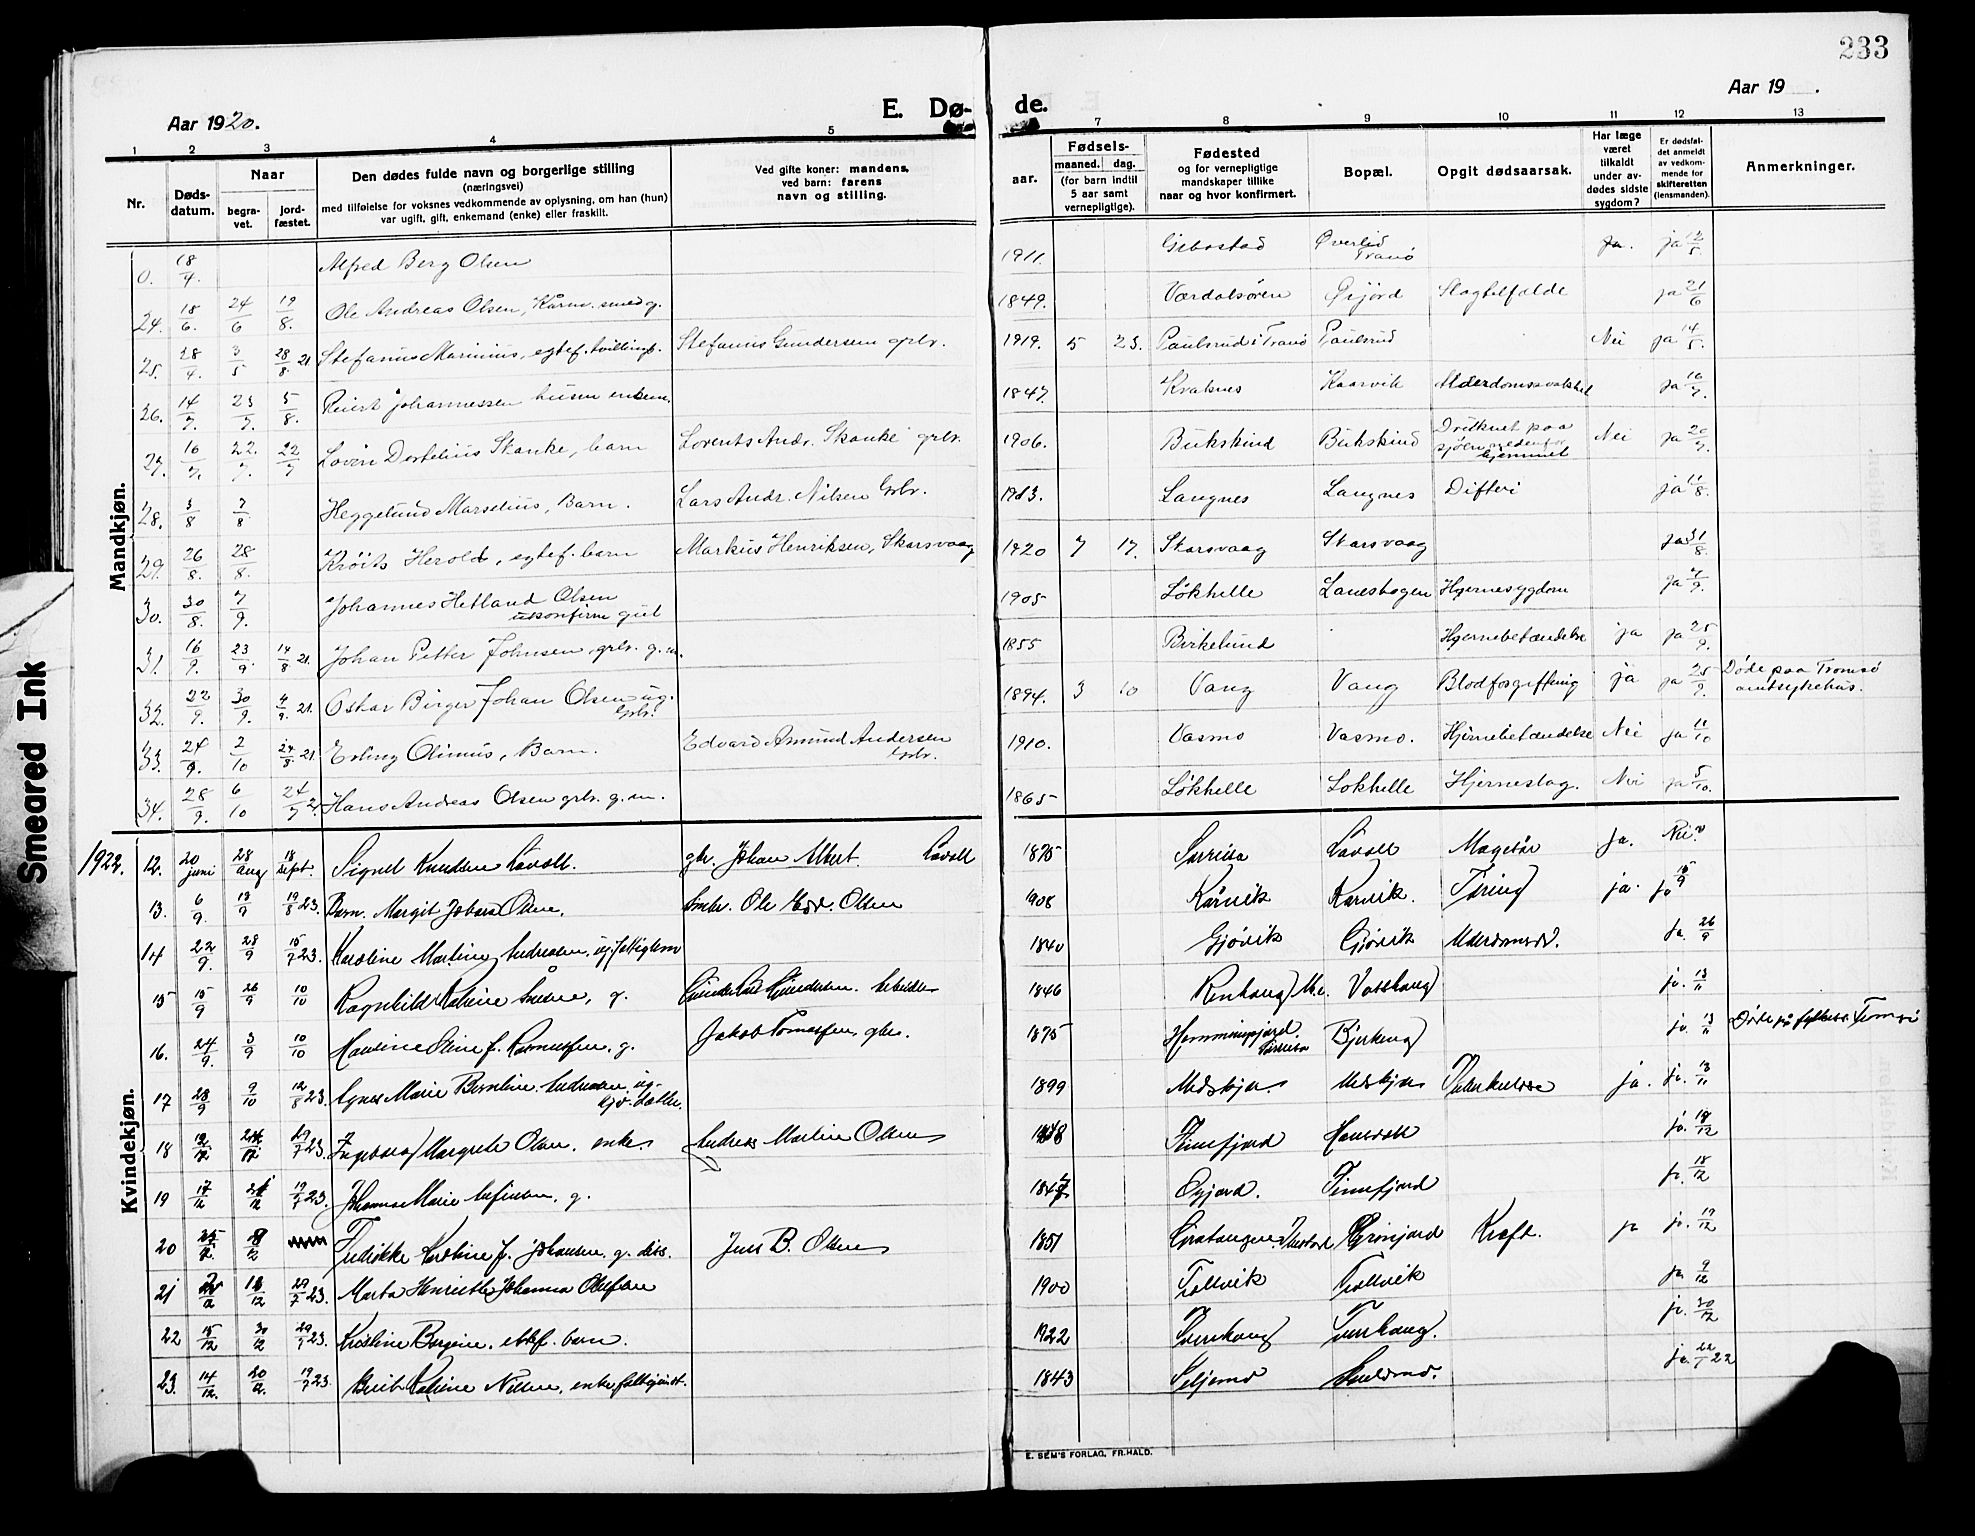 233
Aar 1920.
E. Dø-
de.
Aar 19 .
1 2 3 4 5 7 8 9 10 11 12 13
Nr.
Døds-
datum.
Naar
begra-
vet.
jord-
fæstet.
Den dødes fulde navn og borgerlige stilling
(næringsvei)
med tilføielse for voksnes vedkommende av oplysning, om han (hun)
var ugift, gift, enkemand (enke) eller fraskilt.
Ved gifte koner: mandens,
ved barn: farens
navn og stilling.
aar.
Fødsels-
maaned. dag.
(for barn indtil
5 aar samt
vernepligtige).
Fødested
og for vernepligtige
mandskaper tillike
naar og hvor konfirmert.
Bopæl.
Opgit dødsaarsak.
Har læge
været
tilkaldt
under av-
dødes sidste
sygdom?
Er dødsfal-
det anmeldt
av vedkom-
mende for
skifteretten
(lensmanden).
Anmerkninger.
Mandkjøn.
0. 18/4. Alfred Berg Olsen 1911. Gibostad Øverlid Tranø Ja. ja 12/5.
24. 18/6. 24/6 19/8. Ole Andreas Olsen, Kårm. smed g. 1849. Værdalsören Øijord Slagtilfælde ja 21/6
25. 28/4. 3/5 28/8 21 Stefanus Marinius, egtef. tvillingb. Stefanus Gundersen grbr. 1919. 5 23. Paulsrud i Tranø Paulsrud Nei ja 14/5.
26. 14/7. 23/7. 5/8. Peiert Johannessen husm enkem. 1847. Kvaknes Kaarvik Alderdomssvakhet ja 16/7.
27. 16/7. 22./7. 22/7 Lovin Dortelius Skanke, barn Lorents Andr. Skanke grbr. 1906. Bukskind Bukskind Druknet paa sjøen nedenfor hjemmet Nei ja 20/7.
28. 3/8 7/8. Heggelund Marselius, Barn. Lars Andr. Nilsen Grbr. 1913. Langnes Langnes Difteri ja 11/8.
29. 26/8. 28/8. Kröits Herold, egtef. barn Markus Henriksen, Skarsvaag 1920 7 17. Skarsvaag Skarsvaag ja 31/8.
30. 30/8. 7/9. Johannes Hetland Olsen ukonfirm gut 1905 Løkhelle Lanesbogen Hjernesygdom ja 7/9.
31. 16/9. 23/9. 14/8 21. Johan Petter Johnsen, grbr. g. m. 1855 Birkelund Hjernebetændelse ja ja 25/9.
32. 22/9. 30/9. 4/9. 21. Oskar Birger Johan Olsen ug. Grbr. 1894. 3 10 Vang Vang Blodforgiftning ja ja 25/9. Døde paa Tromsö amtsykehus.
33. 24/9. 2/10 24/8 21. Erling Olinius, Barn. Edvard Amund Andersen Grbr. 1910. Vasmo Vasmo. Hjernebetændelse Nei ja 11/10
34. 28/9. 6/10 24/7 21 Hans Andreas Olsen grbr. g. m. 1865 Løkhelle Løkhelle Hjerneslag. Nei ja 5/10.
Kvindekjøn.
1922. 12. 20 juni 28 aug 18 sept. Signel Knudsen Lavoll. gbr. Johan Albert Lavoll 1875 Sørreisa Lavoll Magesår Ja. Nei
13. 6/9. 13/9 19/8 23. Barn. Margit Johara Olsen. Småbr. Ole Edv. Olsen 1908 Kårvik Kårvik. Tæring ja. ja 15/9
14 22/9. 28/9 15/7 23. Karoline Martine Andreasen, ug. fattiglem 1840 Gjøvik Gjøvik Alderdomssv. Ja. 26/9
15 15/9 26/9 10/10 Ragnhild Katrine g. 1846 ja. 13/11
16. 24/9. 3/9 10/10 Hansine f. Rasmussen. g. Jakob Tomassen, gbr. 1875 Hemmingsjord Sørreisa Bjerkeng ja. 13/11 Døde på sykehus Tromsø
17 28/9 9/10 12/8 23. Agnes Marie Berntine Andreasen, ug. gbr. datter. 1899 Medskjær Medskjær Tuberkulose ja. ja. 13/11
18 12/12 12 29/7 23. Ingeborg Margrete Olsen. enke Andreas Martin Olsen 1848 Finnfjord ja. 19/12
19 17/12 12 19/7 23. Johanna Marie g. 184 Øyjord. Finnfjord ja. 18/12
20 12 Fredrikke Karoline f. Johansen. g. diss. Jens B. Olsen 1851 Gratangen. Grønjord Kræft. ja ja. 19/12
21 12 12 29/7 23. Marta Henriette Johanna Olufsen 1900 Trollvik Trollvik ja. 9/12
22 15/12 30/12 29/7 23. Kristine Bergine. ektef. barn. 1922 Tverhaug Tverhaug. ja. 30/12
23. 14/12. 20/12. 19/7 23. Berit Katrine Nilsen. enke, fattigunst. 1843 Seljemo ja. 22/1 22
E. SEM'S FORLAG, FR.HALD.
Smeared Ink